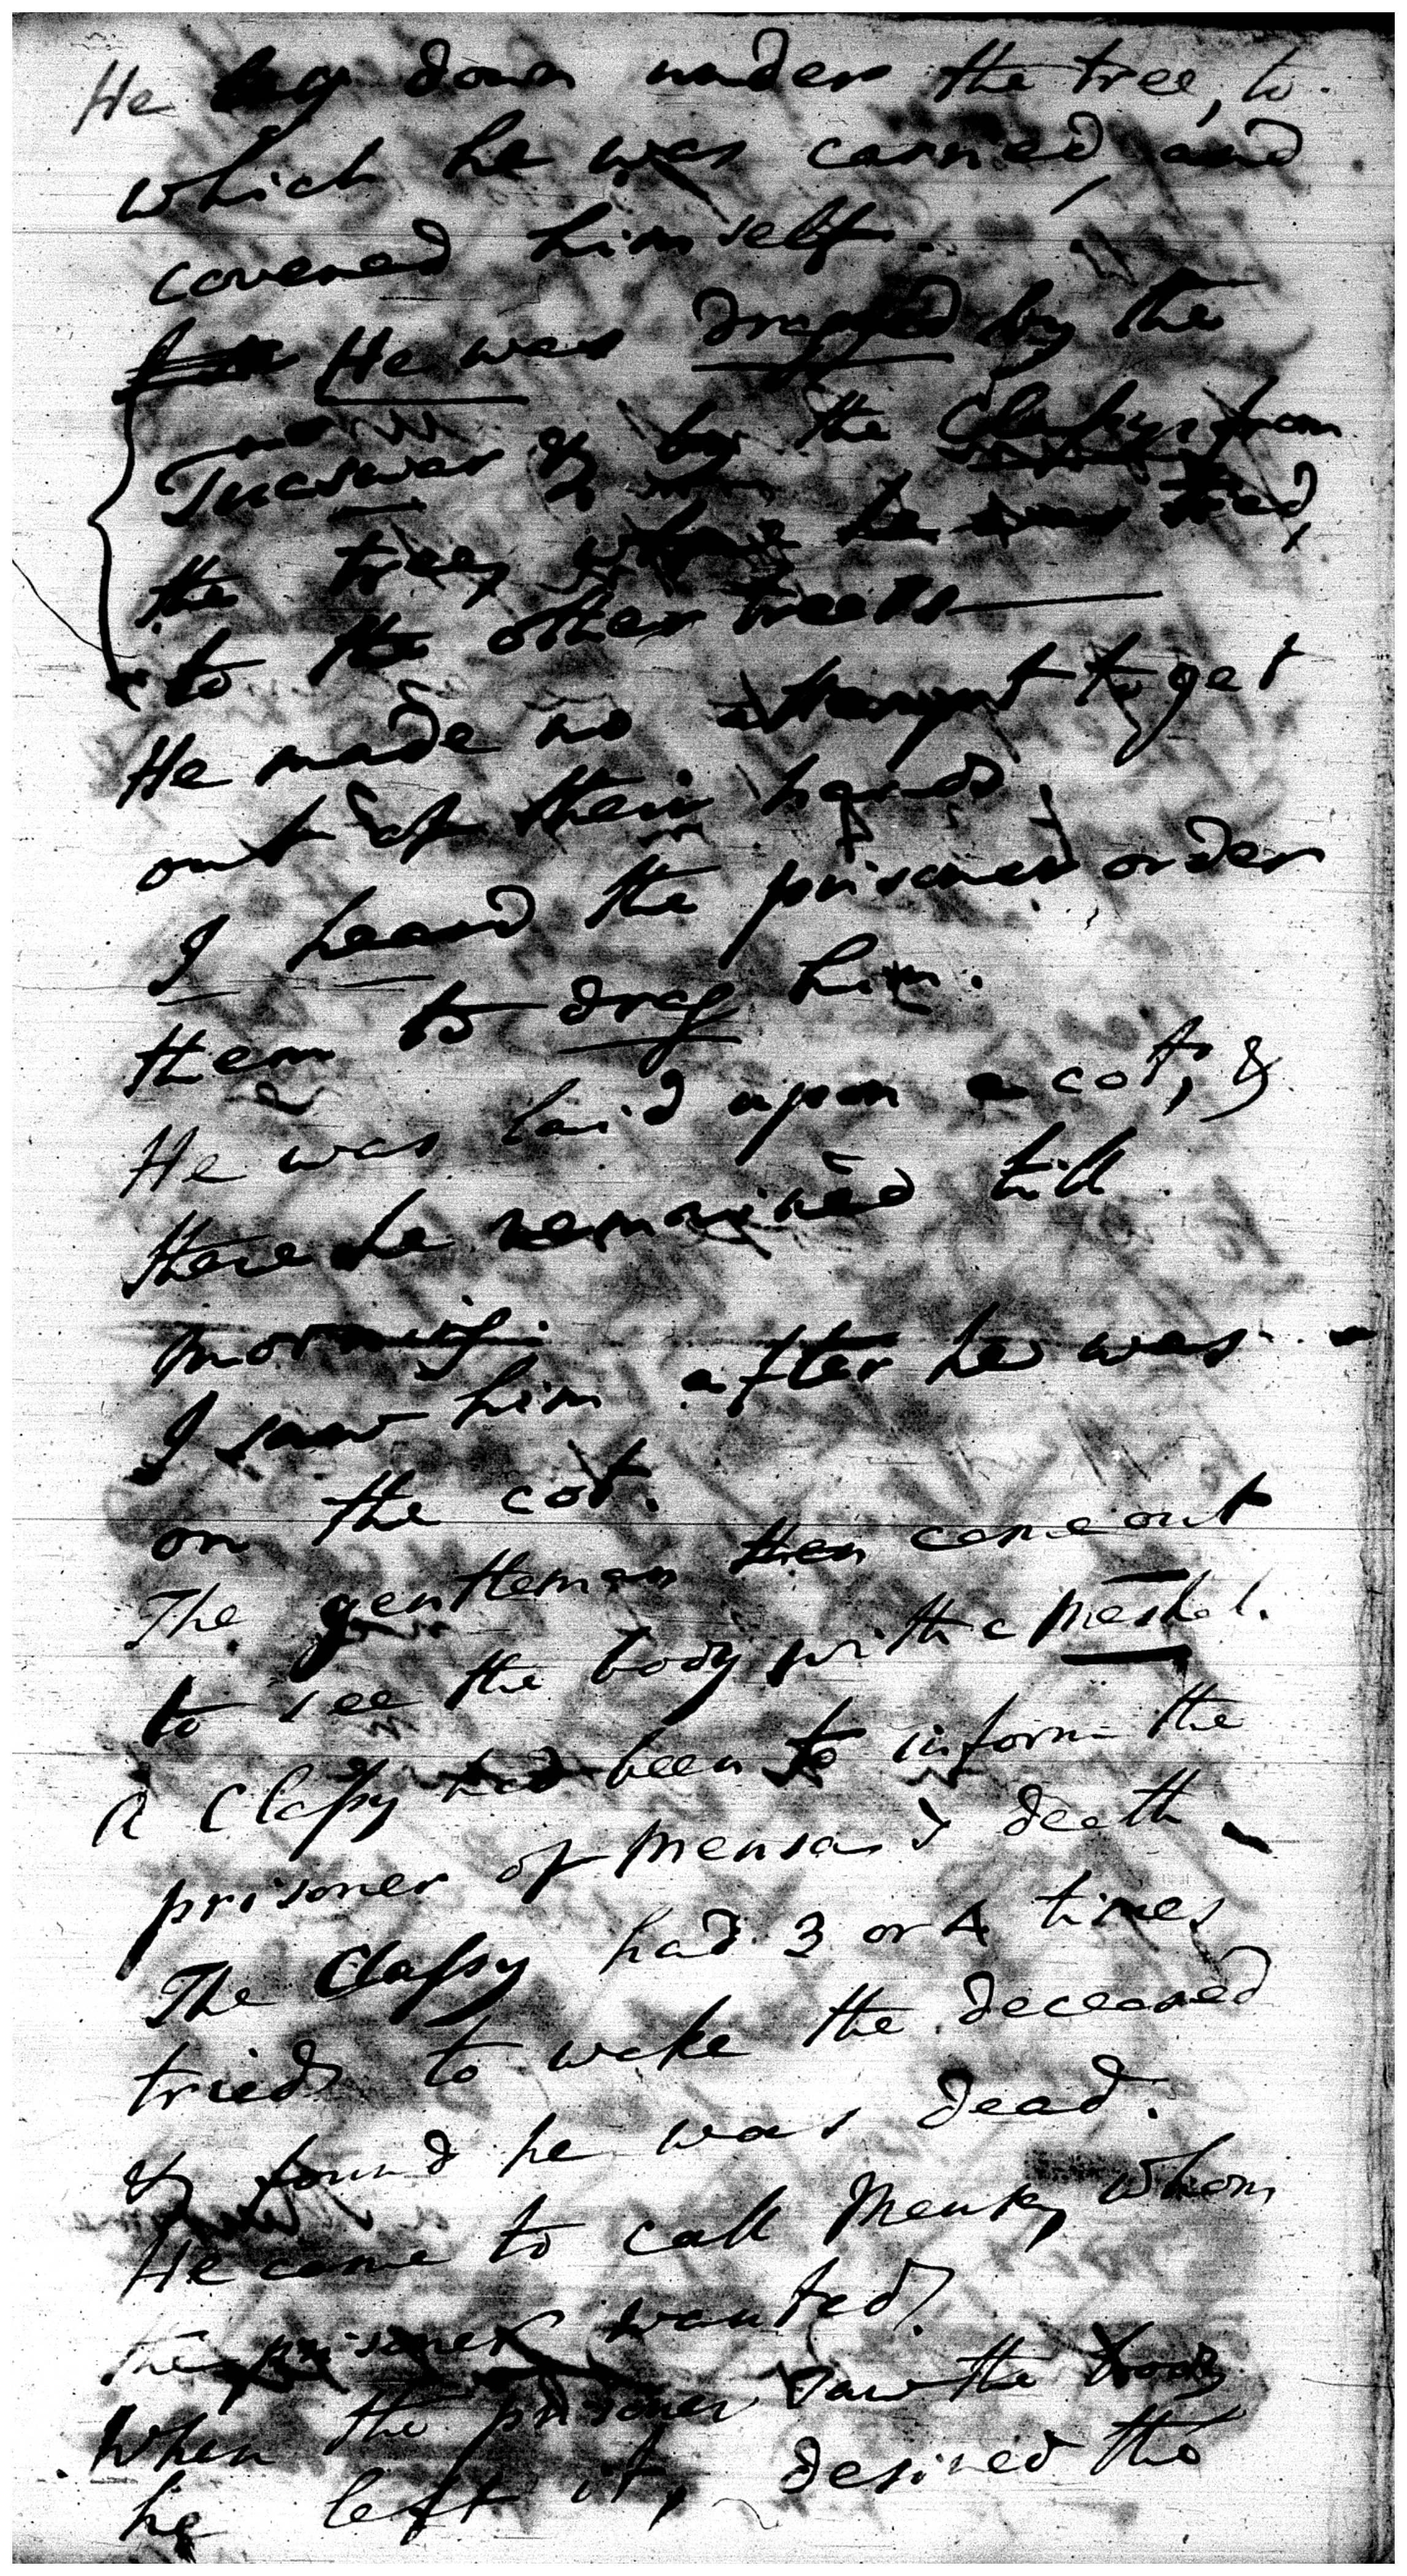 He lay down under the tree, to
which he was carried, and
covered himself.
He was dragged by the
Jucswar & by the Clashys from
the tree, where he was tied,
to the other trees
He made no attempt to get
out of their hands.
I heard the prisoner order
them to drag him.
He was laid upon a cot, &
there he remained till
morning.
I saw him after he was
on the cot.
The gentleman then came out
to see the body with a Meshal.
A Clashy had been to inform the
prisoner of Mensa's death
The Clashy had 3 or 4 times
tried to wake the deceased
& found he was dead.
He came to call Menky whom
the prisoner wanted.
When the prisoner saw the body
he left it, desired the